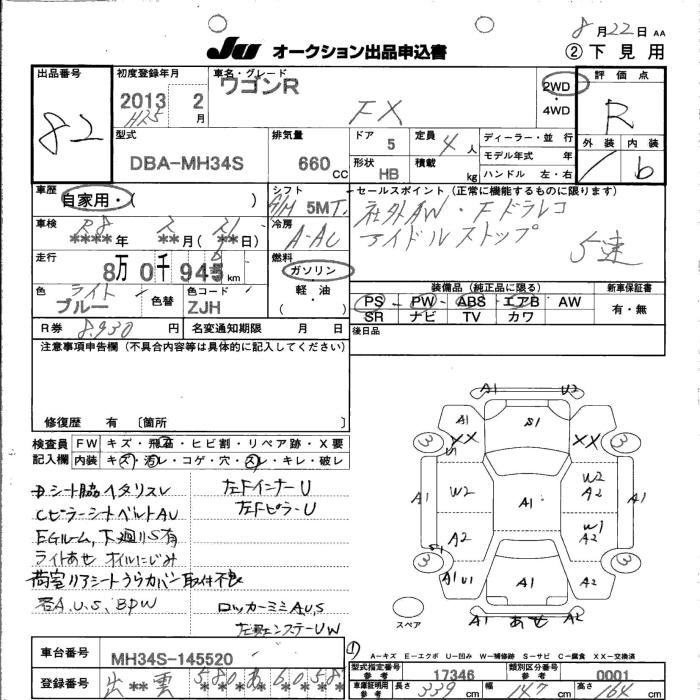 8月22日 AA
JU オークション出品申込書
②下見用
出品番号 82
初度登録年月 2013 2月 H25
車名・グレード ワゴンR FX
2WD・4WD
評価点 R
外装 内装 b
型式 DBA-MH34S
排気量 660CC
ドア 5
形状 HB
定員 4人
積載 kg
ディーラー・並行
モデル年式 年
ハンドル 左・右
車歴 自家用・( )
シフト 5MT
セールスポイント(正常に機能するものに限ります)
社外AW・Fドラレコ
アイドルストップ
5速
車検 R8 ****年 **月(**日)
冷房 A-AC
走行 8万0千94 km
燃料 ガソリン 軽・油 ( )
色 ライトブルー 色替
色コード ZJH
装備品(純正品に限る)
PS PW ABS エアB AW
SR ナビ TV カワ
新車保証書 有・無
R券 8,930円 名変通知期限 月 日
後日品
注意事項申告欄(不具合内容等は具体的に記入してください)
修復歴 有 〔箇所 〕
検査員記入欄
FW キズ・飛石・ヒビ割・リペア跡・X要
内装 キズ・汚レ・コゲ・穴・スレ・キレ・破レ
Dシート脇ヘタリスレ
CピラーシートベルトAU
EGルーム、下廻りS有
ライトあせ オイルにじみ
荷室リアシートうらカバー取付不良
各A.U.S.BPW
左FインナーU
左FピラーU
ロッカーミミA.U.S
A1 U2
A1 S1 XX XX
3 3
A1 W2 A1 W2 A2 A1
A2 W1 A2
3 3
A1 U1 A1 A2
スペア
A1 あせ A2
A-キズ E-エクボ U-凹み W-補修跡 S-サビ C-腐食 XX-交換済
車台番号 MH34S-145520
登録番号 出**雲 580 あ 60 58
型式指定番号 参考 17346
類別区分番号 参考 0001
車庫証明用 参考 長さ 339cm 幅 147cm 高さ 164cm